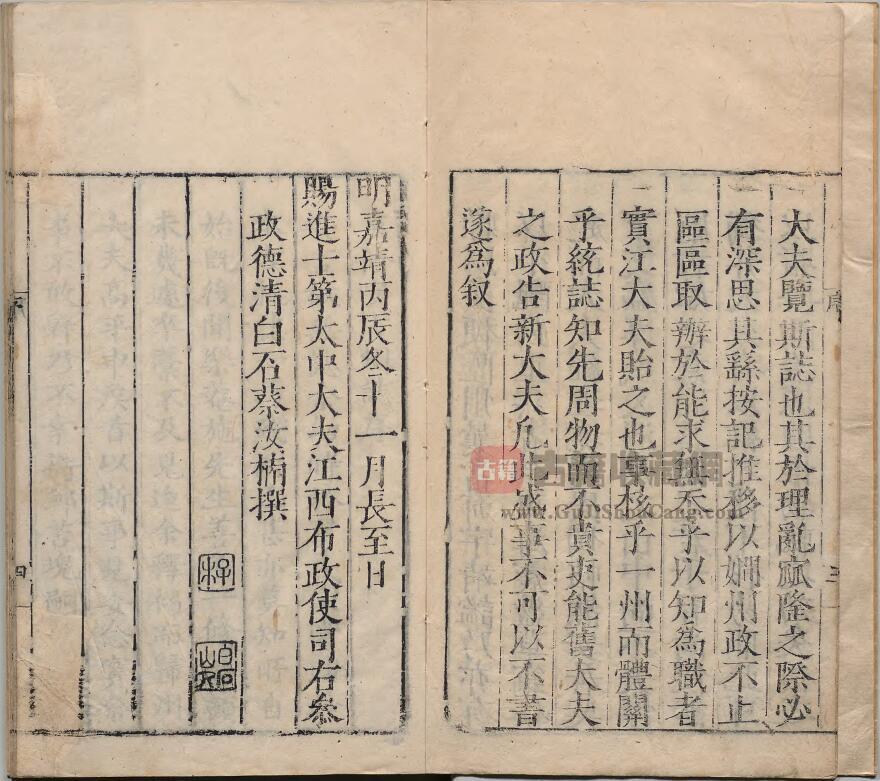 大夫覽斯誌也其於理亂窊隆之際必
有深思其繇按記推移以嫺州政不止
區區取辦於能求無忝乎以知爲職者
實江大夫貽之也事核乎一州而體關
乎統誌知先周物而不貴吏能舊大夫
之政告新大夫凡此盛事不可以不書
遂爲叙
序
三
明嘉靖丙辰冬十一月長至日
賜進士第太中大夫江西布政使司右叅
政德清白石蔡汝楠撰
四
古籍
www.GuJiShouCang.com